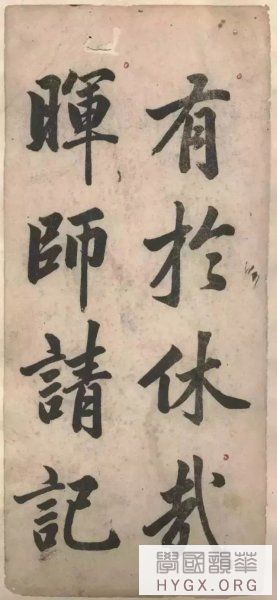 有於休哉
暉師請記
華韻國學
HYGX.ORG